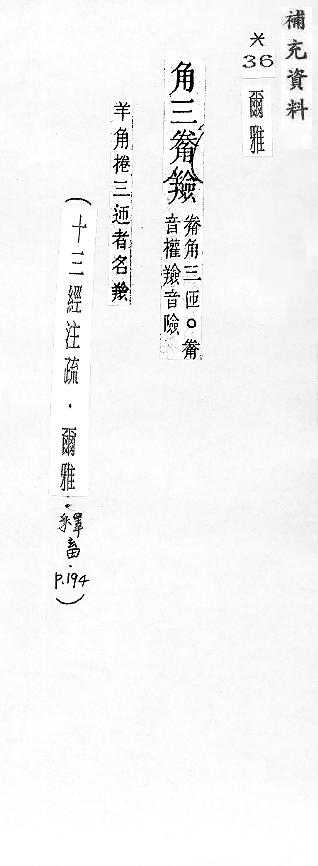 補充資料
*36 爾雅
角三觠羷
觠角三匝。觠
音權羷音險
羊角捲三迊者名羷
(十三經注疏．爾雅．釋畜．P.194)